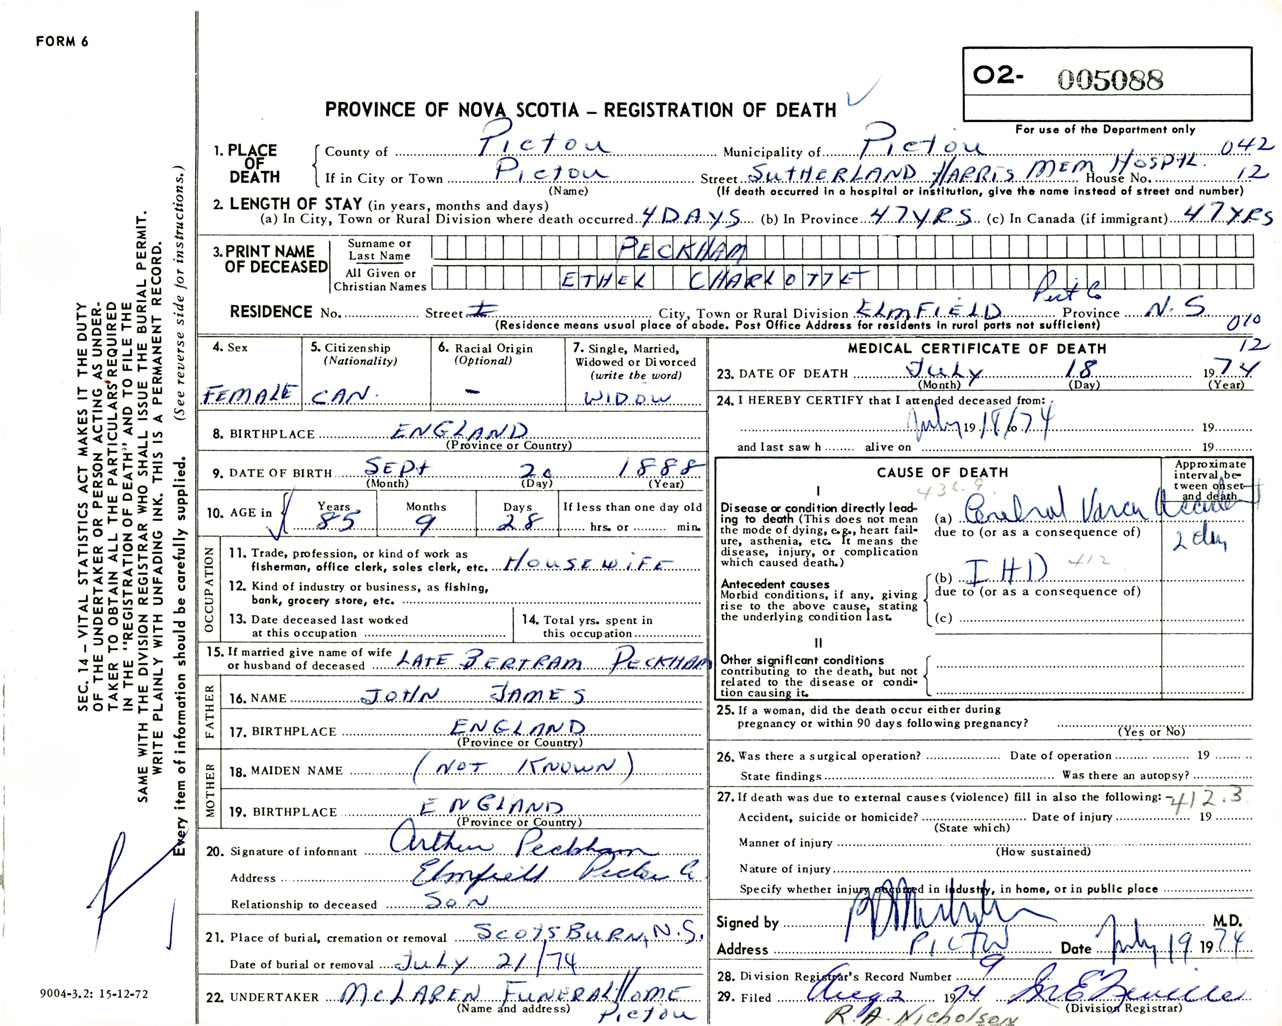 FORM 6
O2- 005088
PROVINCE OF NOVA SCOTIA – REGISTRATION OF DEATH
For use of the Department only
1. PLACE OF DEATH
County of Pictou Municipality of Pictou 042
If in City or Town Pictou Street SUTHERLAND HARRIS MEM HOSPTL. House No. 12
(Name) (If death occurred in a hospital or institution, give the name instead of street and number)
2. LENGTH OF STAY (in years, months and days)
(a) In City, Town or Rural Division where death occurred 4 DAYS (b) In Province 47 YRS (c) In Canada (if immigrant) 47 YRS
3. PRINT NAME OF DECEASED
Surname or Last Name PECKHAM
All Given or Christian Names ETHEL CHARLOTTET
RESIDENCE No. Street City, Town or Rural Division ELMFIELD Pict Co Province N.S
(Residence means usual place of abode. Post Office Address for residents in rural parts not sufficient)
010
12
4. Sex FEMALE
5. Citizenship (Nationality) CAN.
6. Racial Origin (Optional) –
7. Single, Married, Widowed or Divorced (write the word) WIDOW
8. BIRTHPLACE ENGLAND
(Province or Country)
9. DATE OF BIRTH SEPT 20 1888
(Month) (Day) (Year)
10. AGE in Years 85 Months 9 Days 28 If less than one day old hrs. or min.
OCCUPATION
11. Trade, profession, or kind of work as fisherman, office clerk, sales clerk, etc. HOUSEWIFE
12. Kind of industry or business, as fishing, bank, grocery store, etc.
13. Date deceased last worked at this occupation
14. Total yrs. spent in this occupation
15. If married give name of wife or husband of deceased LATE BERTRAM PECKHAM
FATHER
16. NAME JOHN JAMES
17. BIRTHPLACE ENGLAND
(Province or Country)
MOTHER
18. MAIDEN NAME (NOT KNOWN)
19. BIRTHPLACE ENGLAND
(Province or Country)
20. Signature of informant Arthur Peckham
Address Elmfield Pictou Co
Relationship to deceased SON
21. Place of burial, cremation or removal SCOTSBURN, N.S.
Date of burial or removal JULY 21/74
22. UNDERTAKER McLAREN FUNERAL HOME
(Name and address) Pictou
MEDICAL CERTIFICATE OF DEATH
23. DATE OF DEATH July 18 1974
(Month) (Day) (Year)
24. I HEREBY CERTIFY that I attended deceased from:
July 19 18/to 74 19
and last saw h alive on 19
CAUSE OF DEATH
Approximate interval between onset and death
I
436.9
Disease or condition directly leading to death (This does not mean the mode of dying, e.g., heart failure, asthenia, etc. It means the disease, injury, or complication which caused death.)
(a) Cerebral Vascu Accident
due to (or as a consequence of)
2 day
Antecedent causes
Morbid conditions, if any, giving rise to the above cause, stating the underlying condition last.
(b) IHD 412
due to (or as a consequence of)
(c)
II
Other significant conditions contributing to the death, but not related to the disease or condition causing it.
25. If a woman, did the death occur either during pregnancy or within 90 days following pregnancy?
(Yes or No)
26. Was there a surgical operation? Date of operation 19
State findings Was there an autopsy?
27. If death was due to external causes (violence) fill in also the following: 412.3
Accident, suicide or homicide? Date of injury 19
(State which)
Manner of injury
(How sustained)
Nature of injury
Specify whether injury occurred in industry, in home, or in public place
Signed by M.D.
Address PICTOU Date July 19 1974
28. Division Registrar's Record Number 9
29. Filed Aug 2 1974
(Division Registrar)
R.A. Nicholson
SEC. 14 – VITAL STATISTICS ACT MAKES IT THE DUTY
OF THE UNDERTAKER OR PERSON ACTING AS UNDER-
TAKER TO OBTAIN ALL THE PARTICULARS REQUIRED
IN THE "REGISTRATION OF DEATH" AND TO FILE THE
SAME WITH THE DIVISION REGISTRAR WHO SHALL ISSUE THE BURIAL PERMIT.
WRITE PLAINLY WITH UNFADING INK. THIS IS A PERMANENT RECORD.
Every item of information should be carefully supplied. (See reverse side for instructions.)
9004-3.2: 15-12-72